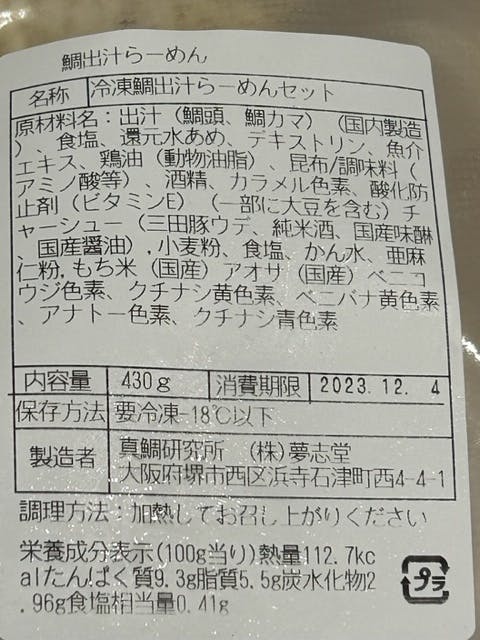 鯛出汁らーめん
名称 冷凍鯛出汁らーめんセット
原材料名：出汁（鯛頭、鯛カマ）（国内製造
）、食塩、還元水あめ、デキストリン、魚介
エキス、鶏油（動物油脂）、昆布/調味料（
アミノ酸等）、酒精、カラメル色素、酸化防
止剤（ビタミンE）（一部に大豆を含む）チ
ャーシュー（三田豚ウデ、純米酒、国産味醂
、国産醤油）,小麦粉、食塩、かん水、亜麻
仁粉,もち米（国産）アオサ（国産）ベニコ
ウジ色素、クチナシ黄色素、ベニバナ黄色素
、アナトー色素、クチナシ青色素
内容量 430g 消費期限 2023.12. 4
保存方法 要冷凍-18℃以下
製造者 真鯛研究所 (株)夢志堂
大阪府堺市西区浜寺石津町西4-4-1
調理方法：加熱してお召し上がりください
栄養成分表示(100g当り)熱量112.7kc
alたんぱく質9.3g脂質5.5g炭水化物2
.96g食塩相当量0.41g
プラ